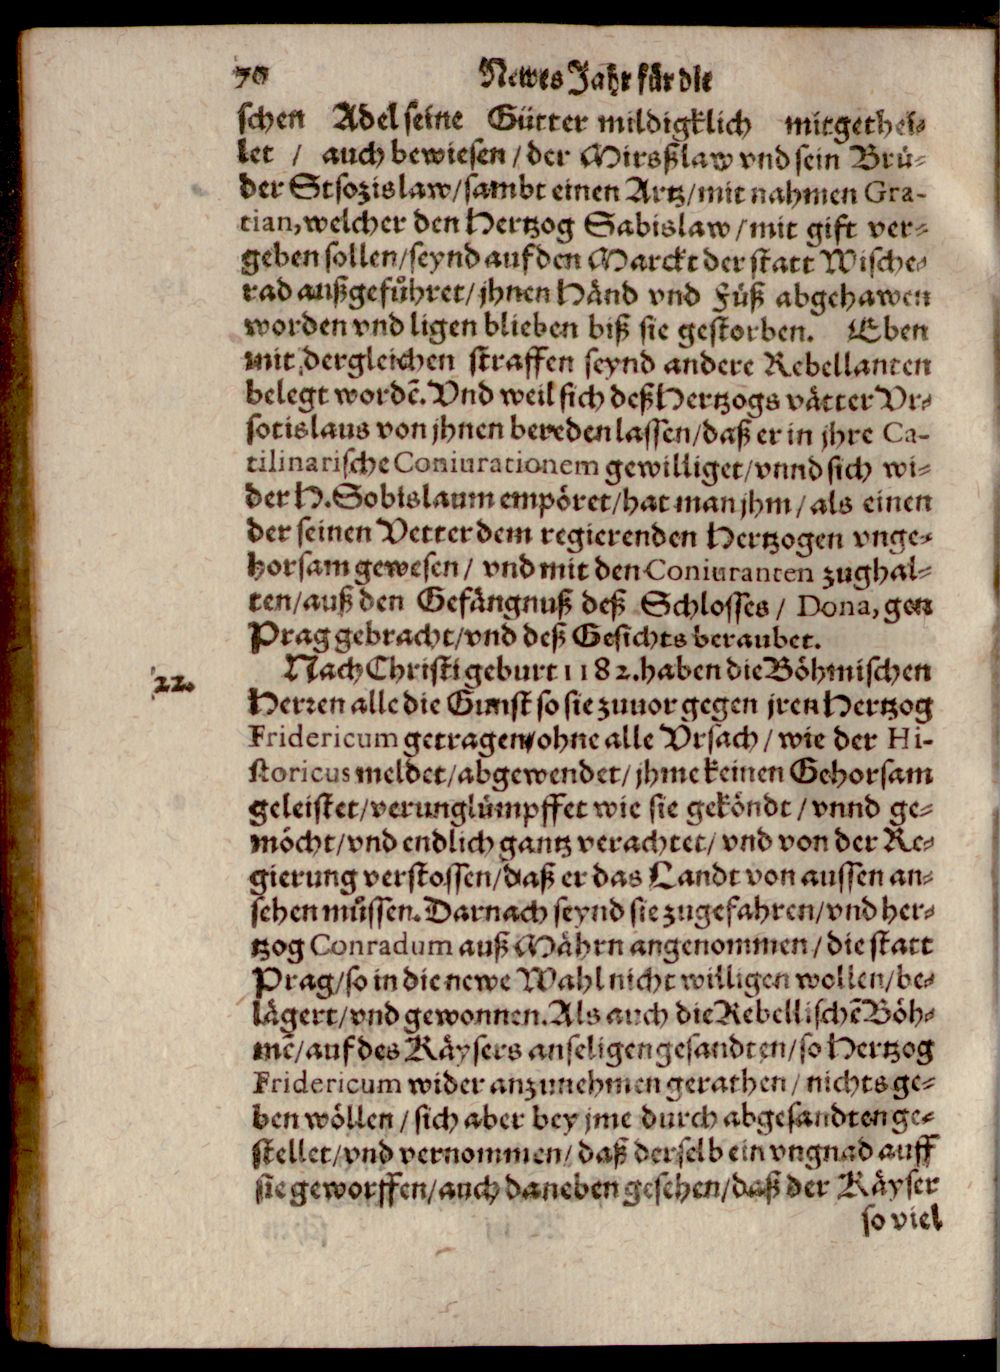 70 Newes Jahr für die
schen Adel seine Gütter mildigklich mitgethei-
let / auch bewiesen / der Mirsßlaw vnd sein Brü-
der Stsozislaw / sambt einen Artz / mit nahmen Gra-
tian, welcher den Hertzog Sabislaw / mit gift ver-
geben sollen / seynd auf den Marckt der statt Wische-
rad außgeführet / jhnen Händ vnd Füß abgehawen
worden vnd ligen blieben biß sie gestorben. Eben
mit dergleichen straffen seynd andere Rebellanten
belegt wordẽ. Vnd weil sich deß Hertzogs vätter Vr-
sotislaus von jhnen bereden lassen / daß er in jhre Ca-
tilinarische Coniurationem gewilliget / vnnd sich wi-
der H. Sobislaum empöret / hat man jhm / als einen
der seinen Vetter dem regierenden Hertzogen vnge-
horsam gewesen / vnd mit den Coniuranten zughal-
ten / auß den Gefängnuß deß Schlosses / Dona, gen
Prag gebracht / vnd deß Gesichts beraubet.
22. Nach Christi geburt 1182. haben die Böhmischen
Herren alle die Gunst so sie zuuor gegen jren Hertzog
Fridericum getragen / ohne alle Vrsach / wie der Hi-
storicus meldet / abgewendet / jhme keinen Gehorsam
geleistet / verunglümpffet wie sie geköndt / vnnd ge-
möcht / vnd endlich gantz verachtet / vnd von der Re-
gierung verstossen / daß er das Landt von aussen an-
sehen müssen. Darnach seynd sie zugefahren / vnd her-
tzog Conradum auß Mährn angenommen / die statt
Prag / so in die newe Wahl nicht willigen wollen / be-
lägert / vnd gewonnen. Als auch die Rebellischẽ Böh-
mẽ / auf des Käysers anseligen gesandten / so Hertzog
Fridericum wider anzunehmen gerathen / nichts ge-
ben wöllen / sich aber bey jme durch abgesandten ge-
stellet / vnd vernommen / daß derselb ein vngnad auff
sie geworffen / auch daneben gesehen / daß der Käyser
so viel